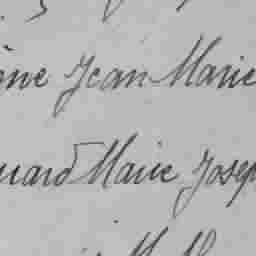 ine Jean-Marie
uard Marie Josep